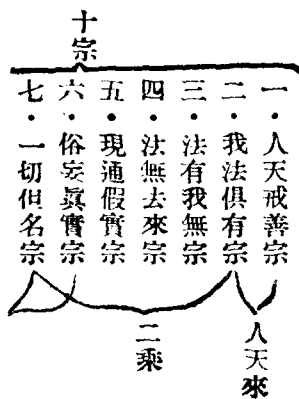 十宗
一・人天戒善宗
二・我法俱有宗
三・法有我無宗
四・法無去來宗
五・現通假實宗
六・俗妄眞實宗
七・一切但名宗
人天來
二乘